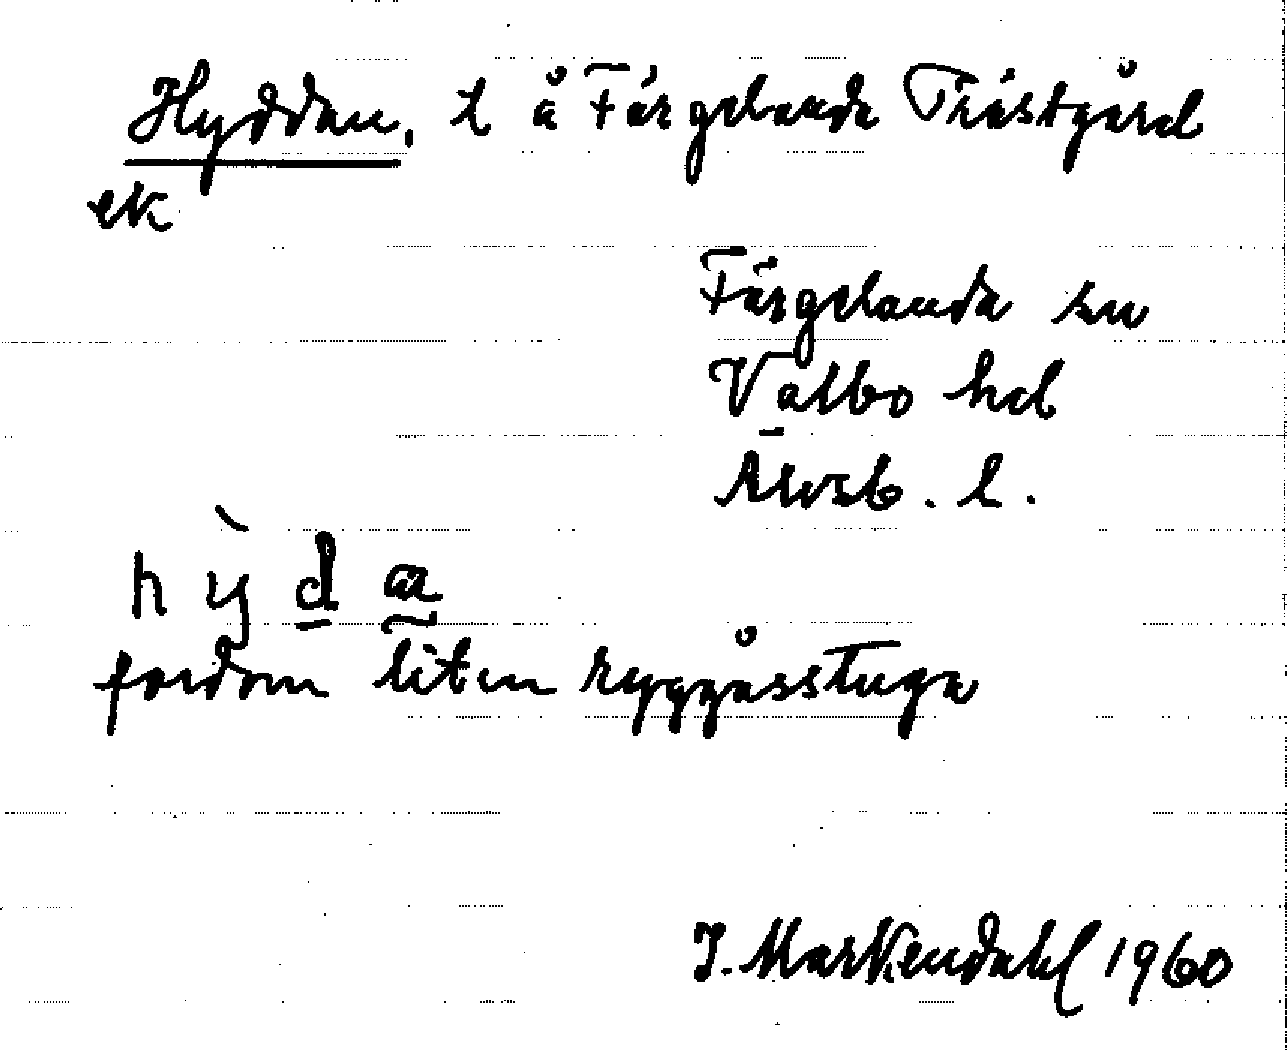 Hyddan, t å Färgelanda Prästgård
ek
Färgelanda sn
Valbo hd
Älvsb. l.
hỳdæ
fordom liten ryggåsstuga
J. Markendahl 1960